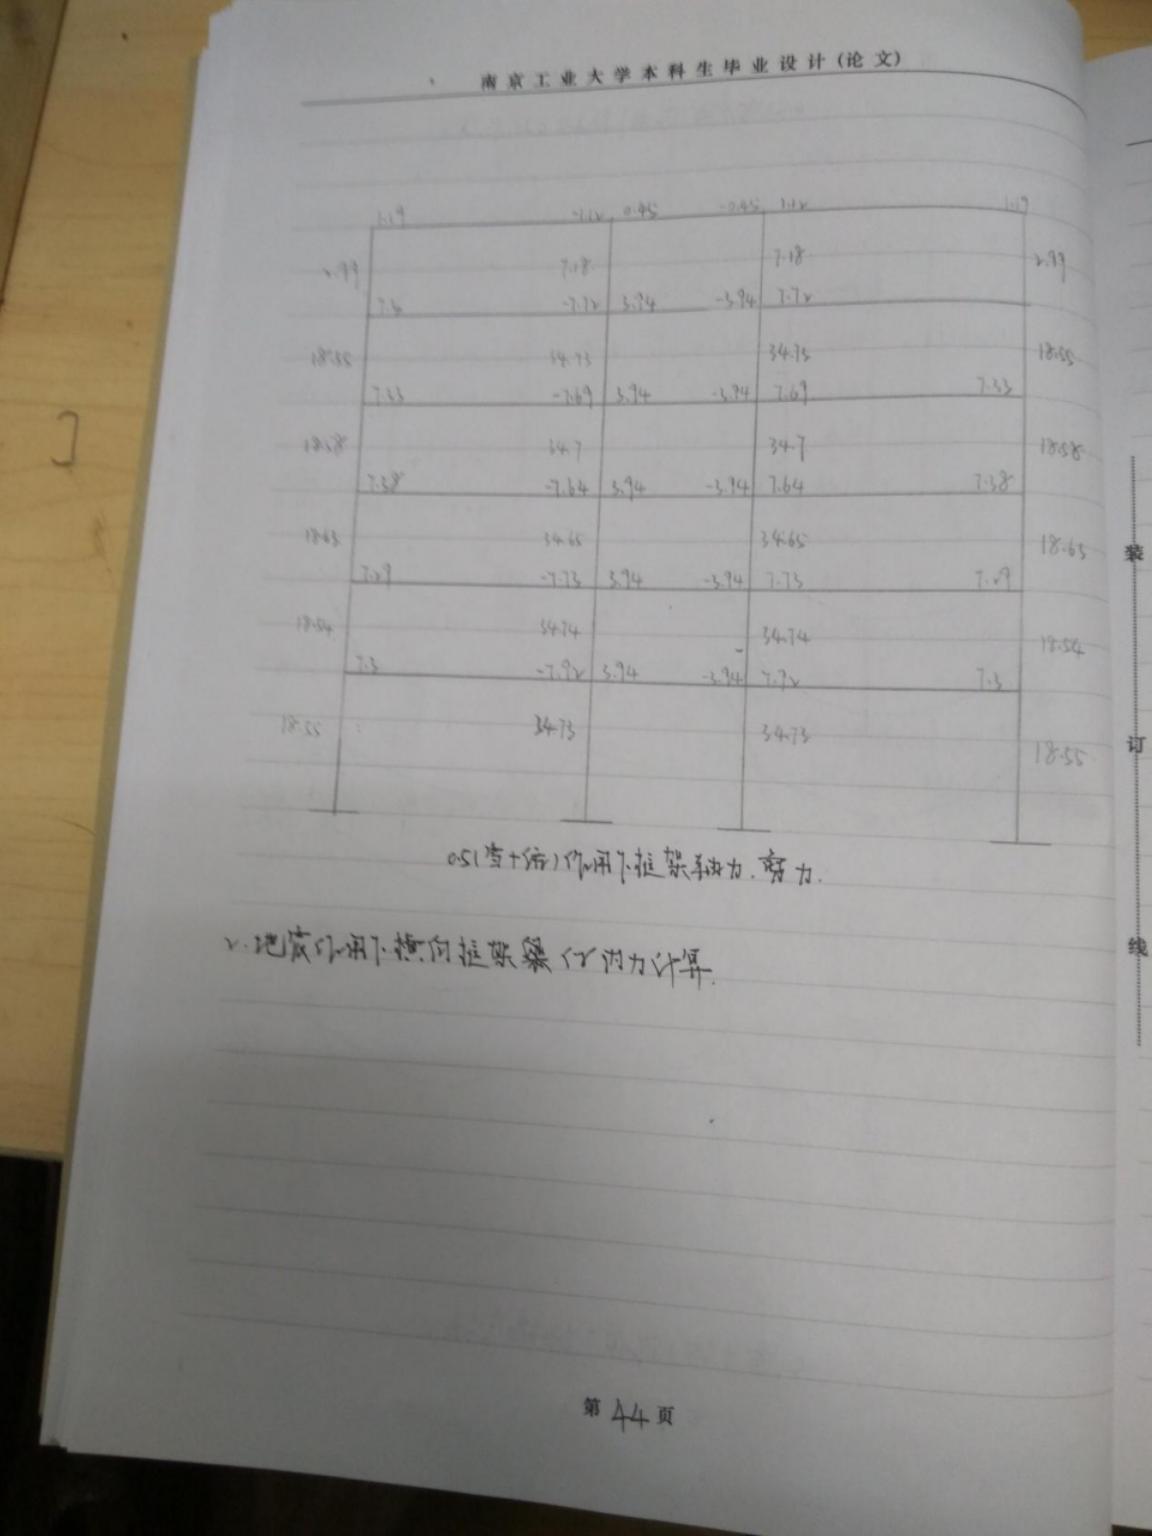 南京工业大学本科生毕业设计(论文)
1.19 -1.12 0.45 -0.45 1.12 1.19
2.99 7.18 7.18 2.99
7.3 -7.72 3.94 -3.94 7.72
18.55 34.73 34.73 18.55
7.33 -7.69 3.94 -3.94 7.69 7.33
18.58 34.7 34.7 18.58
7.38 -7.64 3.94 -3.94 7.64 7.38
18.63 34.65 34.65 18.63
7.29 -7.73 3.94 -3.94 7.73 7.29
18.54 34.74 34.74 18.54
7.3 -7.92 3.94 -3.94 7.72 7.3
18.55 34.73 34.73 18.55
0.5(雪+活)作用下框架轴力.剪力.
2.地震作用下横向框架梁 内力计算.
装
订
线
第44页